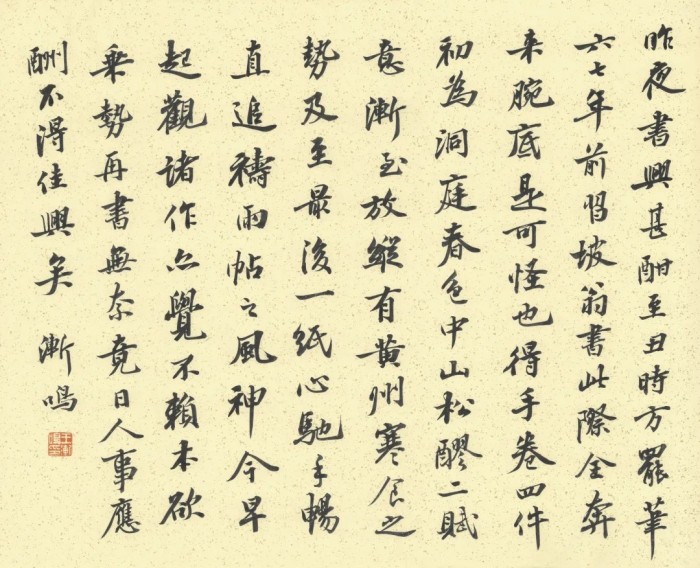 昨夜書興甚酣至丑時方罷筆
六七年前習坡翁書此際全奔
来腕底是可怪也得手卷四件
初為洞庭春色中山松醪二賦
意漸至放縱有黄州寒食之
勢及至最後一紙心馳手暢
直追禱雨帖之風神今早
起觀諸作亦覺不賴本欲
乘勢再書無奈竟日人事應
酬不得佳興矣 漸鳴